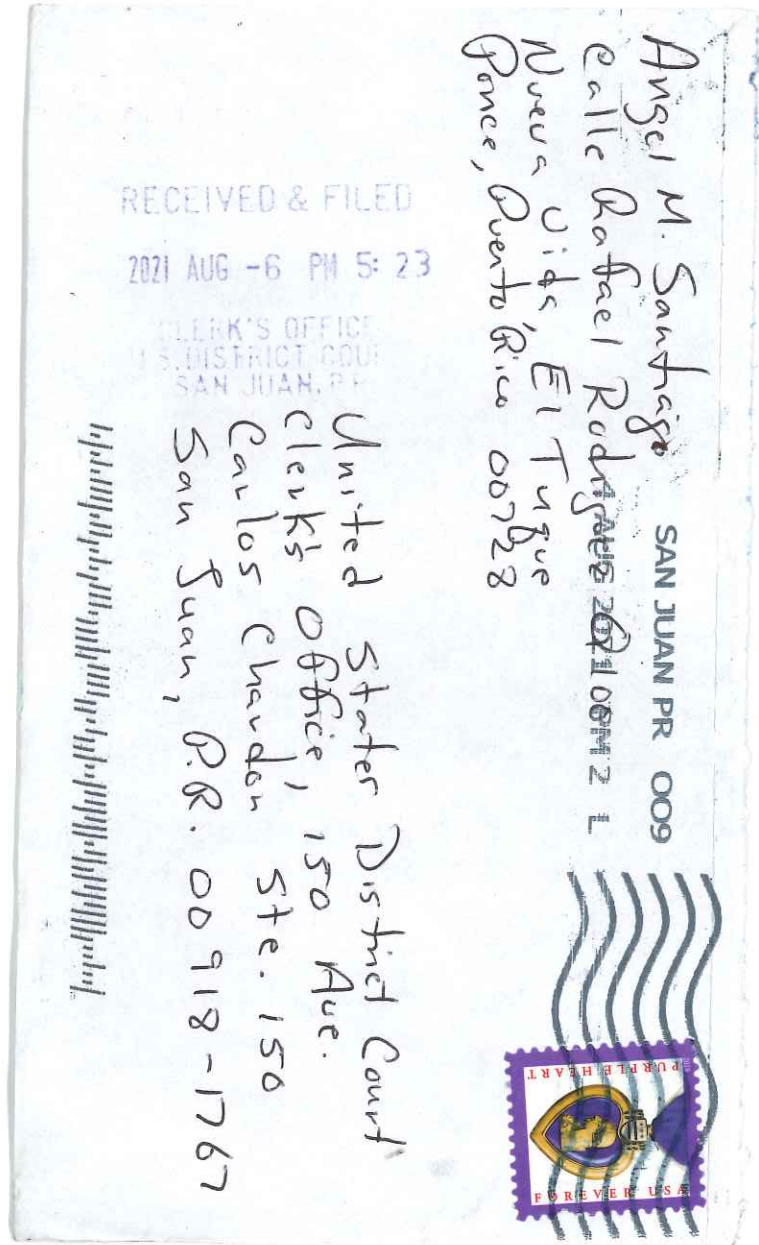 Angel M. Santiago
Calle Rafael Rodriguez
Nueva Vida, El Tuque
Ponce, Puerto Rico 00728
SAN JUAN PR 009
2021 PM 2 L
PURPLE HEART
FOREVER USA
RECEIVED & FILED
2021 AUG -6 PM 5:23
CLERK'S OFFICE
U.S. DISTRICT COU
SAN JUAN, PR
United States District Court
Clerk's Office, 150 Ave.
Carlos Chardon Ste. 150
San Juan, P.R. 00918-1767